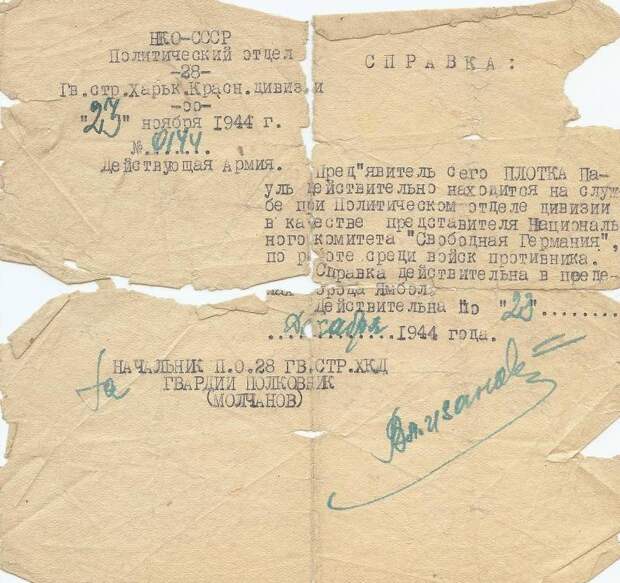 НКО-СССР
Политический отдел
-28-
Гв.стр.Харьк.Красн.дивизии
-оо-
"23" ноября 1944 г.
№ 0144
Действующая Армия.
СПРАВКА:
Пред"явитель сего ПЛОТКА Па-
уль действительно находится на служ
бе при Политическом отделе дивизии
в качестве представителя Националь
ного комитета "Свободная Германия",
по работе среди войск противника.
Справка действительна в преде-
лах города Ямбол
Действительна по "23".........
Декабря 1944 года.
НАЧАЛЬНИК П.О.28 ГВ.СТР.ХКД
За ГВАРДИИ ПОЛКОВНИК
(МОЛЧАНОВ)